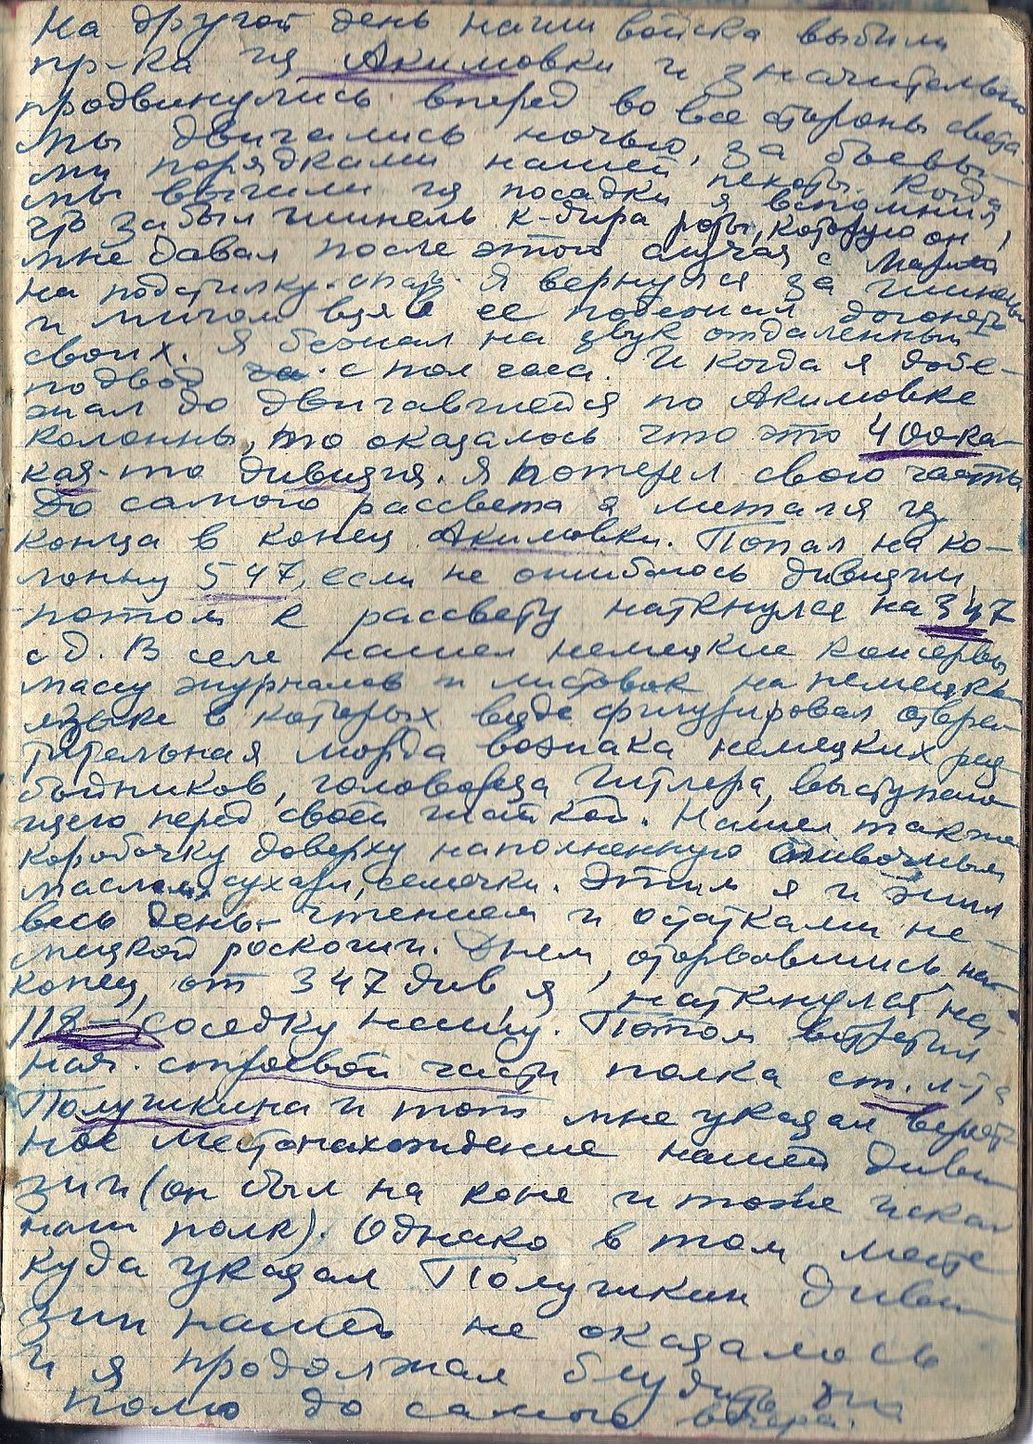 На другой день наши войска выбили
пр-ка из Акимовки и значительно
продвинулись вперед во все стороны света
Мы двигались ночью, за боевы-
ми порядками нашей пехоты. Когда
мы вышли из посадки я вспомнил,
что забыл шинель к-дира роты, которую он
мне давал после этого случая с
на подстилку. Я вернулся за шинелью
и мигом взяв ее побежал догонять
своих. Я бежал на звук отдаленный
подвод с пол часа. И когда я добе-
жал до двигавшейся по Акимовке
колонны, то оказалось что это 400 ка-
кая-то дивизия. Я потерял свою часть
До самого рассвета я метался из
конца в конец Акимовки. Попал на ко-
лонну 547, если не ошибаюсь дивизии,
потом к рассвету наткнулся на 347
сд. В селе нашел немецкие консервы
массу журналов и листовок на немецком
языке в которых везде фигурировал отвра-
тительная морда вожака немецких раз-
бойников, головореза Гитлера, выступаю-
щего перед своей шайкой. Нашел также
коробочку доверху наполненную сливочным
маслом, сухари, семечки. Этим я и жил
весь день - чтением и остатками не-
мецкой роскоши. Днем, оторвавшись на-
конец, от 347 див я наткнулся на
118 - соседку нашу. Потом встретил
нач. строевой части полка ст. л-та
Полушкина и тот мне указал вероят
ное местонахождение нашей диви
зии (он был на коне и тоже искал
наш полк). Однако в том месте
куда указал Полушкин диви
зии нашей не оказалось
и я продолжал блудить по
полю до самого вечера.